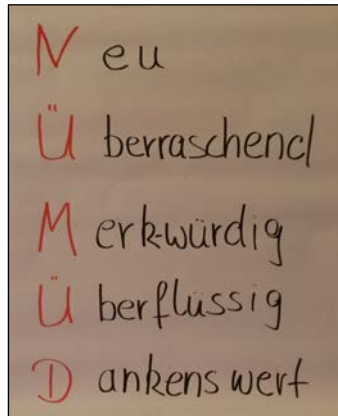 Neu
Überraschend
Merkwürdig
Überflüssig
Dankenswert